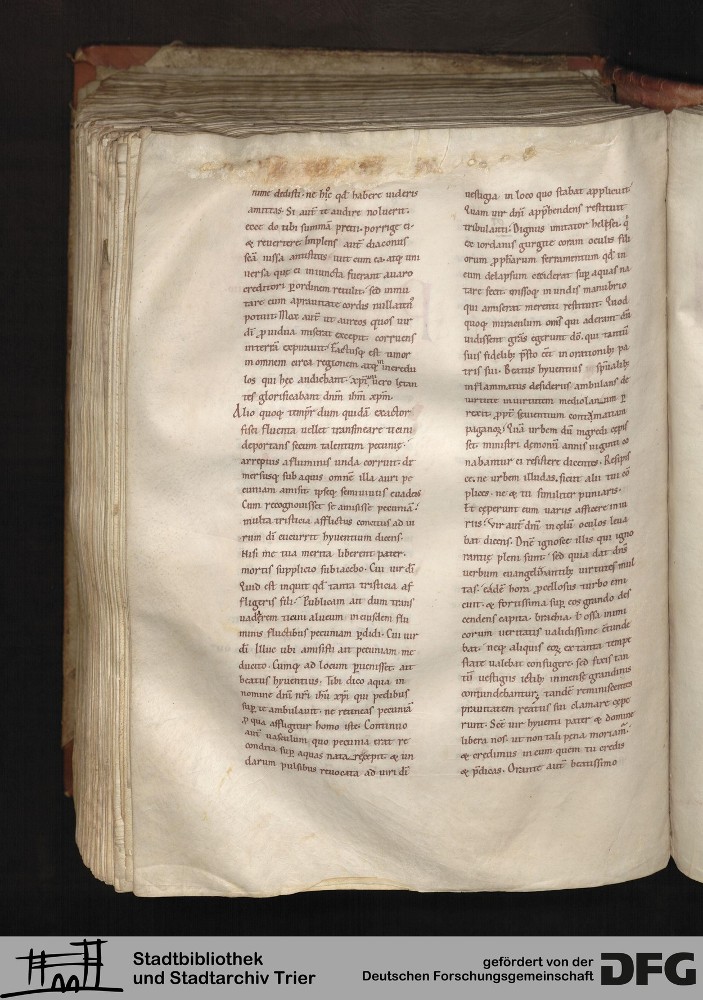 nime dedisti · ne hc̄ qd̄ habere uideris
amittas · Si aut̄ te audire noluerit ·
ecce do tibi summā precii · porrige ei ·
& reuertere Implens aut̄ diaconus
iussa antistitis iuit cum ea · atq; uni
uersa que ei iniuncta fuerant auaro
creditori p ordinem retulit · sed inmu
tare eum aprauitate cordis nullaten⁹
potuit · Mox aut̄ ut aureos quos uir
dī p uidua miserat excepit · corruens
interrā expirauit · Factusq; est timor
in omnem circa regionem atq; incredu
los qui hec audiebant · xp̄i uero letan
tes glorificabant dnm̄ ihm̄ xp̄m ·
Alio quoq; tempr̄ dum quidā exactor
fisci fluenta uellet transmeare ticini
deportans secum talentum pecunię ·
arrepius afluminis unda corruit · dī
mersusq; sub aquis omnē illa auri pe
cuniam amisit ipseq; semiuiuus euadēs
Cum recognouisset se amisisse pecuniā :
multa tristicia afflictus concitus ad ui
rum dī cucurrit hyuentium dicens ·
Nisi me tua merita liberent pater ·
mortis supplicio subiacebo · Cui uir dī
Quid est inquit qd̄ tanta tristicia af
fligeris fili · Publicam ait dum trans
uadarem ticini alueum in eiusdem flu
minis fluctibus pecuniam p̄didi · Cui uir
dī Illuc ubi amisisti ait pecuniam me
ducito · Cumq; ad locum p̄uenisset · ait
beatus hyuentius · Tibi dico aqua in
nomine dnī nr̄i ihū xp̄i qui pedibus
sup̄ te ambulauit · ne retineas pecuniā
p qua affligitur homo iste · Continuo
aut̄ uasculum quo pecunia erat re
condita sup̄ aquas nata & un
darum pulsibus reuocata ad uiri dī
uestigia in loco quo stabat applicuit
Quam uir dnī app̄hendens restituit
tribulanti · Dignus imitator helysei · q̄
ex iordanis gurgite coram oculis fili
orum p̄pharum ferrmentum qd̄ in
eum delapsum ceciderat sup̄ aquas na
tare fecit · missoq; in undis manubrio
qui amiserat merenti restituit · Quod
quoq; miraculum oms̄ qui aderant dum
uidissent grās egerunt dō · qui tantū
suis fidelib; p̄sto est in orationib; pa
tris sui · Beatus hyuentius spiualib;
inflammatus desideriis ambulans de
uirtute in uirtutem mediolanum p
rexit · ppt̄ seuientium contaminatam
paganoꝝ · Quā urbem dū ingredi cepis
set · ministri demonū annis uiginti co
nabantur ei resistere dicentes · Resipis
ce · ne urbem illudas · sicut alii tui cō
plices · ne & tu similiter puniaris ·
Et ceperunt eum uariis afficere iniu
riis · Vir aut̄ dnī in cęlū oculos leua
bat dicens · Dnē ignosce illis qui igno
rantię pleni sunt · sed quia dat dns̄
uerbum euangelizantib; uirtutes mul
tas · eadē hora p̄cellosus turbo emi
cuit · & fortissima sup̄ eos grando des
cendens capita · brachia · t̄ ossa inimi
corum ueritatis ualidissime cōtunde
bat · neq; aliquis eoꝝ ex tanta tempe
state ualebat confugere · sed fixis tan
tū uestigiis ictib; inmense grandinis
contundebantur · tandē reminiscentes
prauitatem reatus sui clamare cepe
runt · Scē uir hyuenti pater & domine
libera nos · ut non tali pena moriam̄ ·
& credimus in eum quem tu credis
& p̄dicas · Orante aut̄ beatissimo
Stadtbibliothek
und Stadtarchiv Trier
gefördert von der
Deutschen Forschungsgemeinschaft
DFG